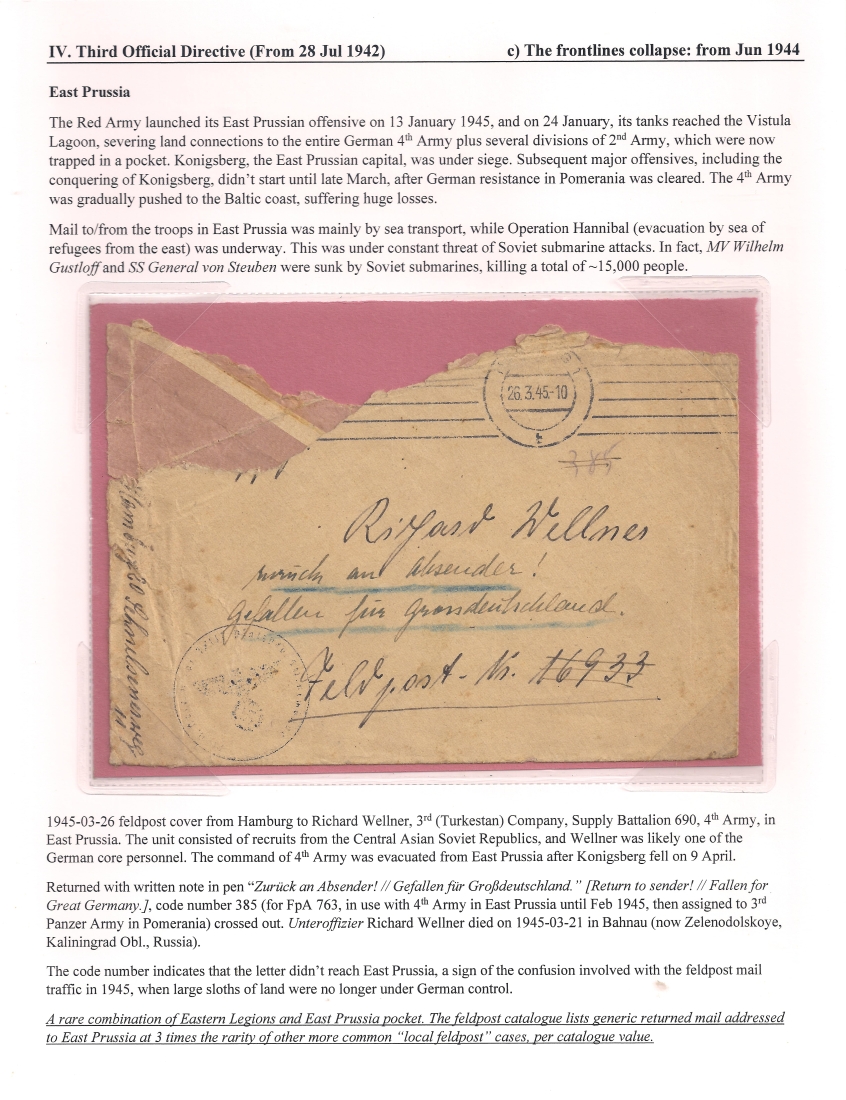 IV. Third Official Directive (From 28 Jul 1942) c) The frontlines collapse: from Jun 1944
East Prussia
The Red Army launched its East Prussian offensive on 13 January 1945, and on 24 January, its tanks reached the Vistula
Lagoon, severing land connections to the entire German 4th Army plus several divisions of 2nd Army, which were now
trapped in a pocket. Konigsberg, the East Prussian capital, was under siege. Subsequent major offensives, including the
conquering of Konigsberg, didn't start until late March, after German resistance in Pomerania was cleared. The 4th Army
was gradually pushed to the Baltic coast, suffering huge losses.
Mail to/from the troops in East Prussia was mainly by sea transport, while Operation Hannibal (evacuation by sea of
refugees from the east) was underway. This was under constant threat of Soviet submarine attacks. In fact, MV Wilhelm
Gustloff and SS General von Steuben were sunk by Soviet submarines, killing a total of ~15,000 people.
26.3.45.-10
385
Richard Wellner
zurück an Absender!
Gefallen für Grossdeutschland.
Feldpost-Nr. 16933
Hamburg
1945-03-26 feldpost cover from Hamburg to Richard Wellner, 3rd (Turkestan) Company, Supply Battalion 690, 4th Army, in
East Prussia. The unit consisted of recruits from the Central Asian Soviet Republics, and Wellner was likely one of the
German core personnel. The command of 4th Army was evacuated from East Prussia after Konigsberg fell on 9 April.
Returned with written note in pen "Zurück an Absender! // Gefallen für Großdeutschland." [Return to sender! // Fallen for
Great Germany.], code number 385 (for FpA 763, in use with 4th Army in East Prussia until Feb 1945, then assigned to 3rd
Panzer Army in Pomerania) crossed out. Unteroffizier Richard Wellner died on 1945-03-21 in Bahnau (now Zelenodolskoye,
Kaliningrad Obl., Russia).
The code number indicates that the letter didn't reach East Prussia, a sign of the confusion involved with the feldpost mail
traffic in 1945, when large sloths of land were no longer under German control.
A rare combination of Eastern Legions and East Prussia pocket. The feldpost catalogue lists generic returned mail addressed
to East Prussia at 3 times the rarity of other more common "local feldpost" cases, per catalogue value.